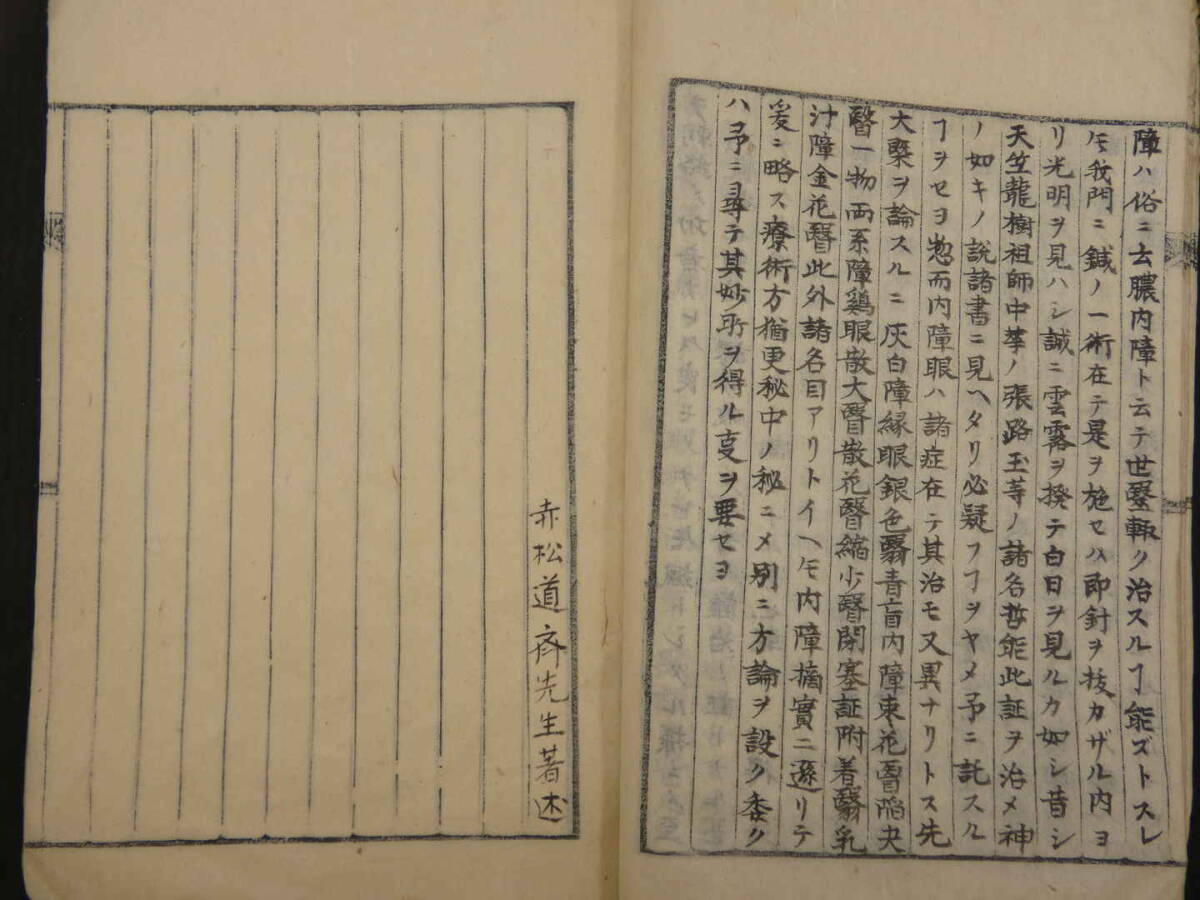 障ハ俗ニ云膿内障ト云テ世醫輙ク治スルヿ能ズトスレ
𪜈我門ニ鍼ノ一術在テ是ヲ施セハ即針ヲ抜カザル内ヨ
リ光明ヲ見ハシ誠ニ雲霧ヲ揆テ白日ヲ見ルカ如シ昔シ
天竺龍樹祖師中華ノ張路玉等ノ諸名哲能此証ヲ治メ神
ノ如キノ説諸書ニ見ヘタリ必疑フヿヲヤメ予ニ託スル
ヿヲセヨ惣而内障眼ハ諸症在テ其治モ又異ナリトス先
大槩ヲ論スルニ灰白障緑眼銀色翳青盲内障棗花翳陷夬
翳一物両系障鷄眼散大翳散花翳縮少翳閉塞証附着翳乳
汁障金花翳此外諸名目アリトイヘ𪜈内障摘實ニ遜リテ
爰ニ略ス療術方猶更秘中ノ秘ニメ別ニ方論ヲ設ク委ク
ハ予ニ尋テ其妙所ヲ得ル亊ヲ要セヨ
赤松道斉先生著述